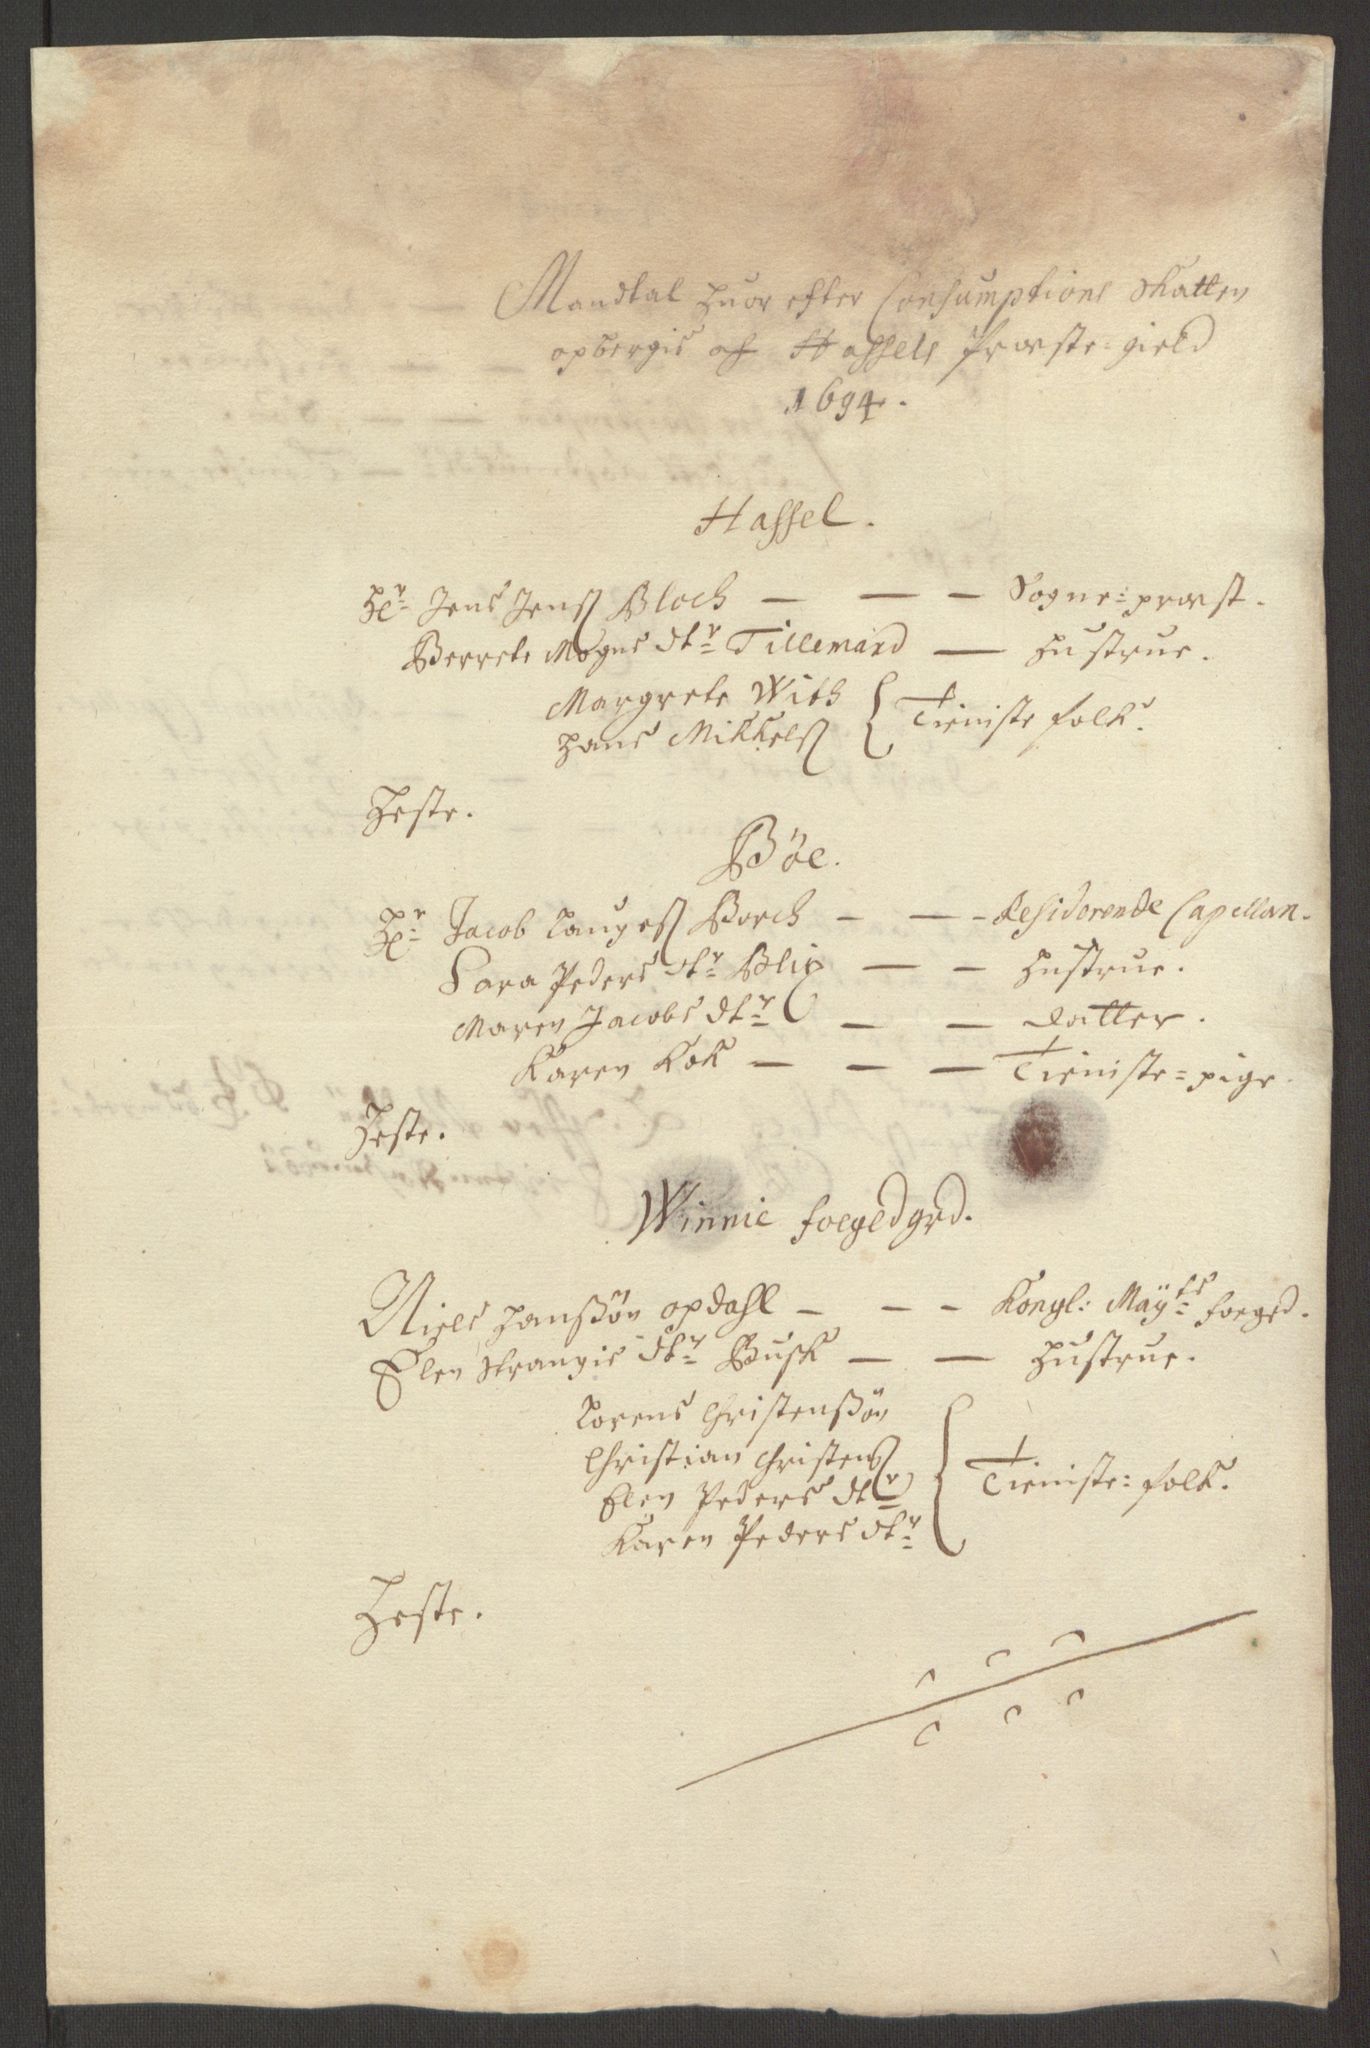 Mandtal huor efter Consumptions Skatten
opbergis af Hassels Præste-gield
1694.
Hassel.
Hr. Jens Jenss Bloch — — — Sogne-præst.
Berrete Mogns dtr Tillemand — Hustrue.
Margrete With
Hans Mikkelss } Tieniste folk.
Heste.
Böe.
Hr. Jacob Laugess Borch — — — Residerende Capellan.
Sara Peders dtr Blix — — Hustrue.
Maren Jacobs dtr — — datter.
Karen Kok — — — Tieniste-pige.
Heste.
Winnie foegedgrd.
Niels Hanssön opdahl — — — Kongl: Maÿts foeged.
Elen Strangis dtr Busk — — Hustrue.
Lorens Christenssön
Christian Christenss
Elen Peders dtr } Tieniste-folk.
Karen Peders dtr
Heste.